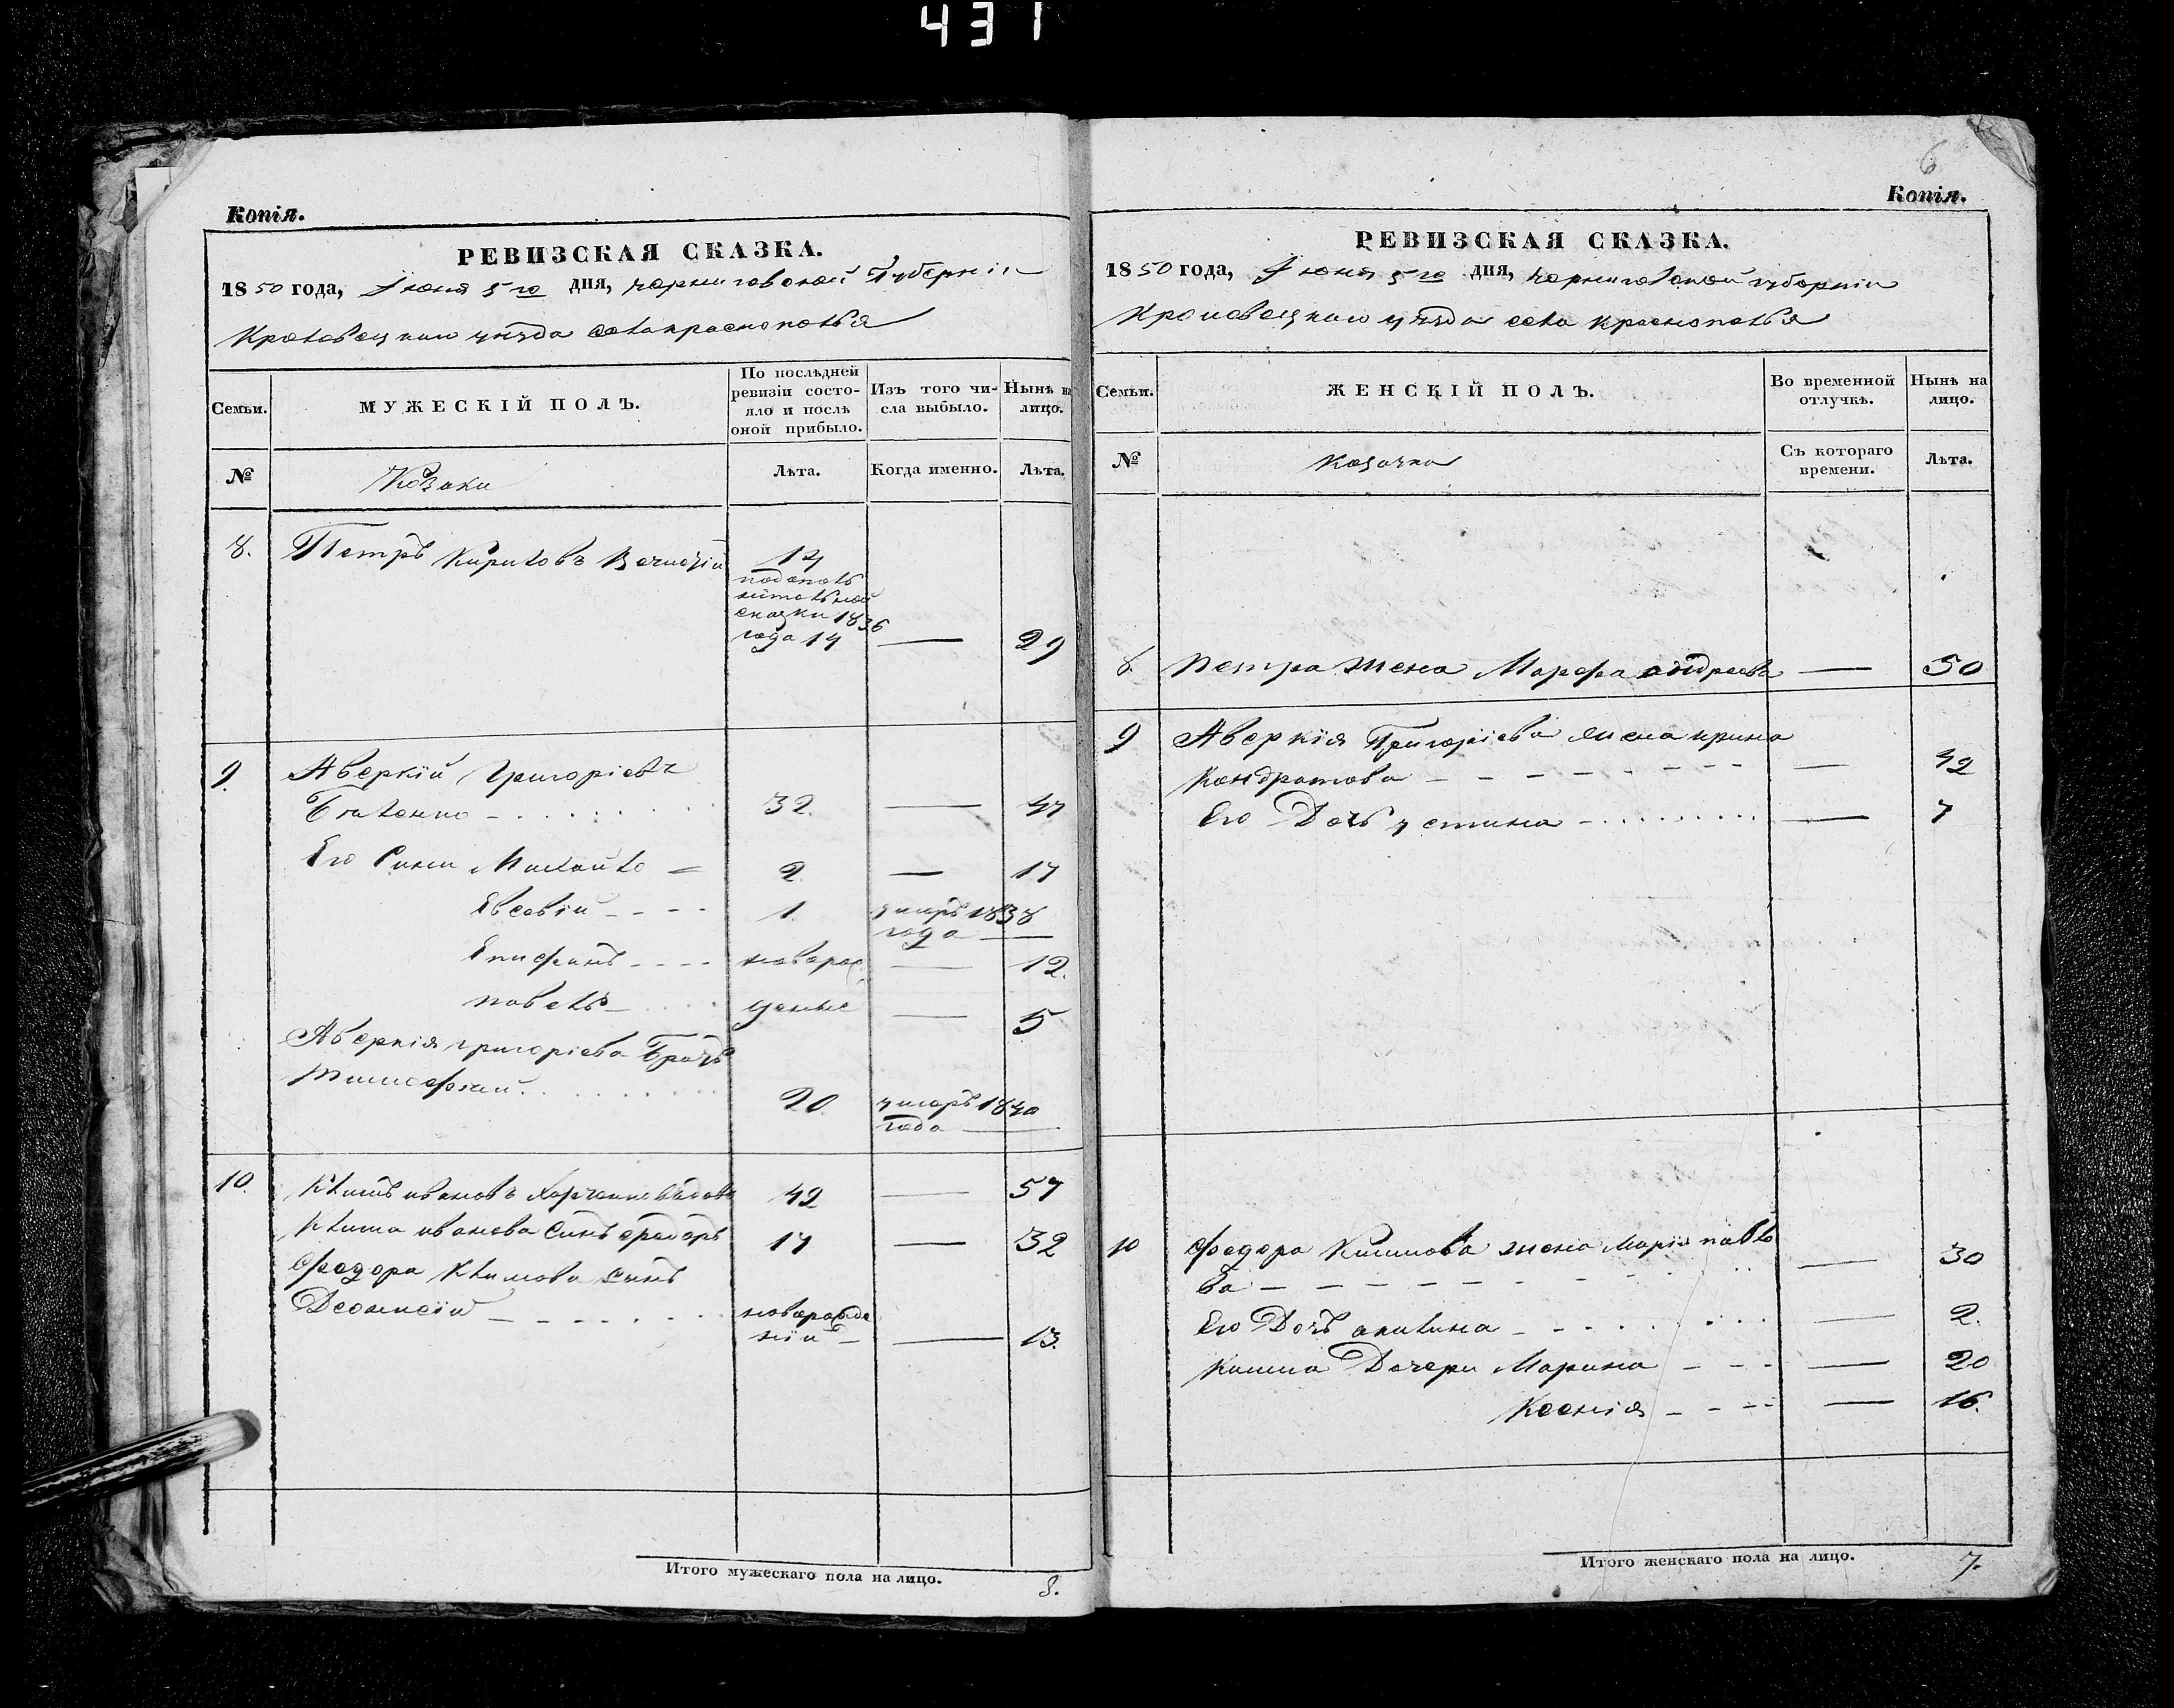 431
Копія.
РЕВИЗСКАЯ СКАЗКА.
1850 года, Іюня 5го дня, Черниговской Губерніи
Кролевецкаго уѣзда села Краснополья
Семьи.
МУЖЕСКІЙ ПОЛЪ.
По послѣдней ревизіи состояло и послѣ оной прибыло.
Изъ того числа выбыло.
Нынѣ на лицо.
№
Козаки
Лѣта.
Когда именно.
Лѣта.
8. Петръ Кириловъ 14
по дополнительной
сказки 1836
года 14 — 29
9. Аверкій Григоріевъ
32. — 47
Его Сыни Михайло 2. — 17
Евсевій 1. умеръ 1838
года —
Епифанъ новорож — 12.
Павелъ денные — 5
Аверкія Григоріева Братъ
Тимофей 20. умеръ 1840
года —
10. Климъ Ивановъ Харченко вдовъ 42 — 57
Клима Иванова Синъ Федоръ 17 — 32
Федора Климова Синъ
Деонисій новорожде
ній — 13.
Итого мужескаго пола на лицо. 8.
6
Копія.
РЕВИЗСКАЯ СКАЗКА.
1850 года, Іюня 5го дня, Черниговской губерніи
Кролевецкаго уѣзда села Краснополья
Семьи.
ЖЕНСКІЙ ПОЛЪ.
Во временной отлучкѣ.
Нынѣ на лицо.
№
Козачки
Съ котораго времени.
Лѣта.
8 Петра Жена Марфа Андреева — 50
9 Аверкія Григоріева жена Ирина
Кондратова — 42
Его Дочь Устина — 7
10 Федора Климова жена Марія Павло
ва — 30
Его Дочь Акилина — 2.
Клима Дочери Марина — 20
Ксенія — 16.
Итого женскаго пола на лицо. 7.